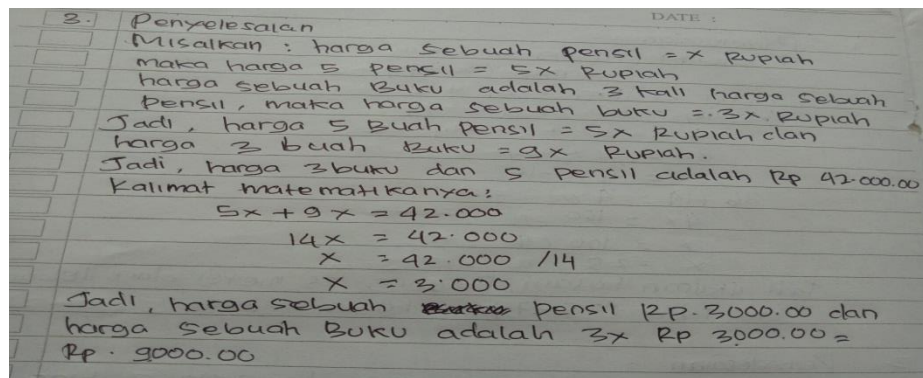 DATE :
3. Penyelesaian
Misalkan : harga sebuah pensil = x Rupiah
maka harga 5 pensil = 5x Rupiah
harga sebuah Buku adalah 3 kali harga sebuah
pensil, maka harga sebuah buku = 3x Rupiah
Jadi, harga 5 Buah Pensil = 5x Rupiah dan
harga 3 buah Buku = 9x Rupiah.
Jadi, harga 3 buku dan 5 pensil adalah Rp 42.000.00
Kalimat matematikanya:
5x + 9x = 42.000
14x = 42.000
x = 42.000 /14
x = 3.000
Jadi, harga sebuah pensil Rp. 3000.00 dan
harga sebuah Buku adalah 3x Rp 3000.00 =
Rp. 9000.00